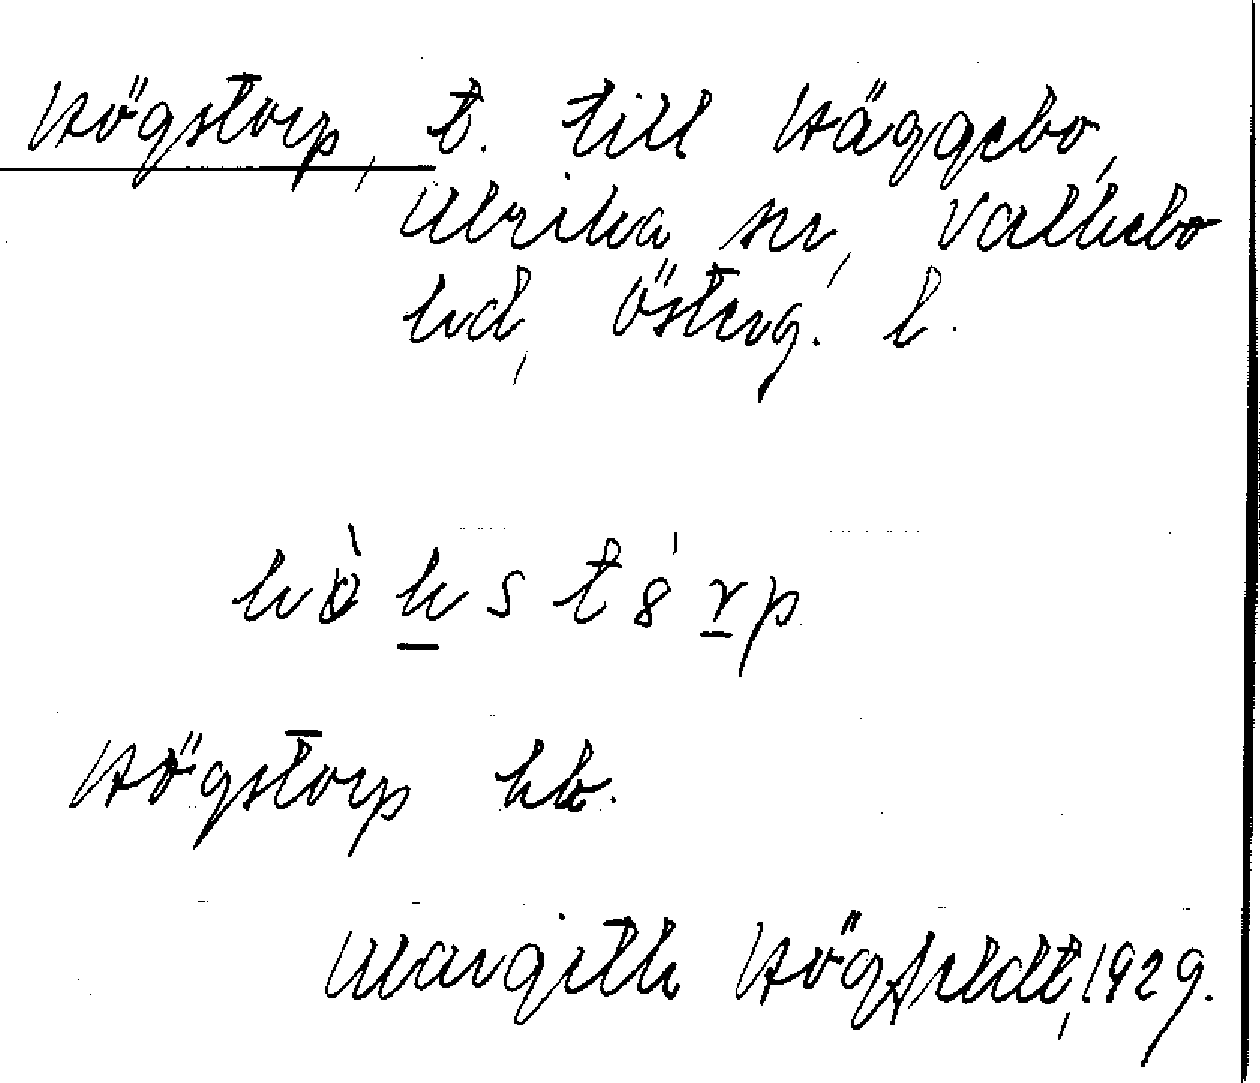 Högstorp, t. till Häggebo,
Ulrika sn, Valkebo
hd, Österg. l.
Högstorp hb.
Margith Högfeldt, 1929.